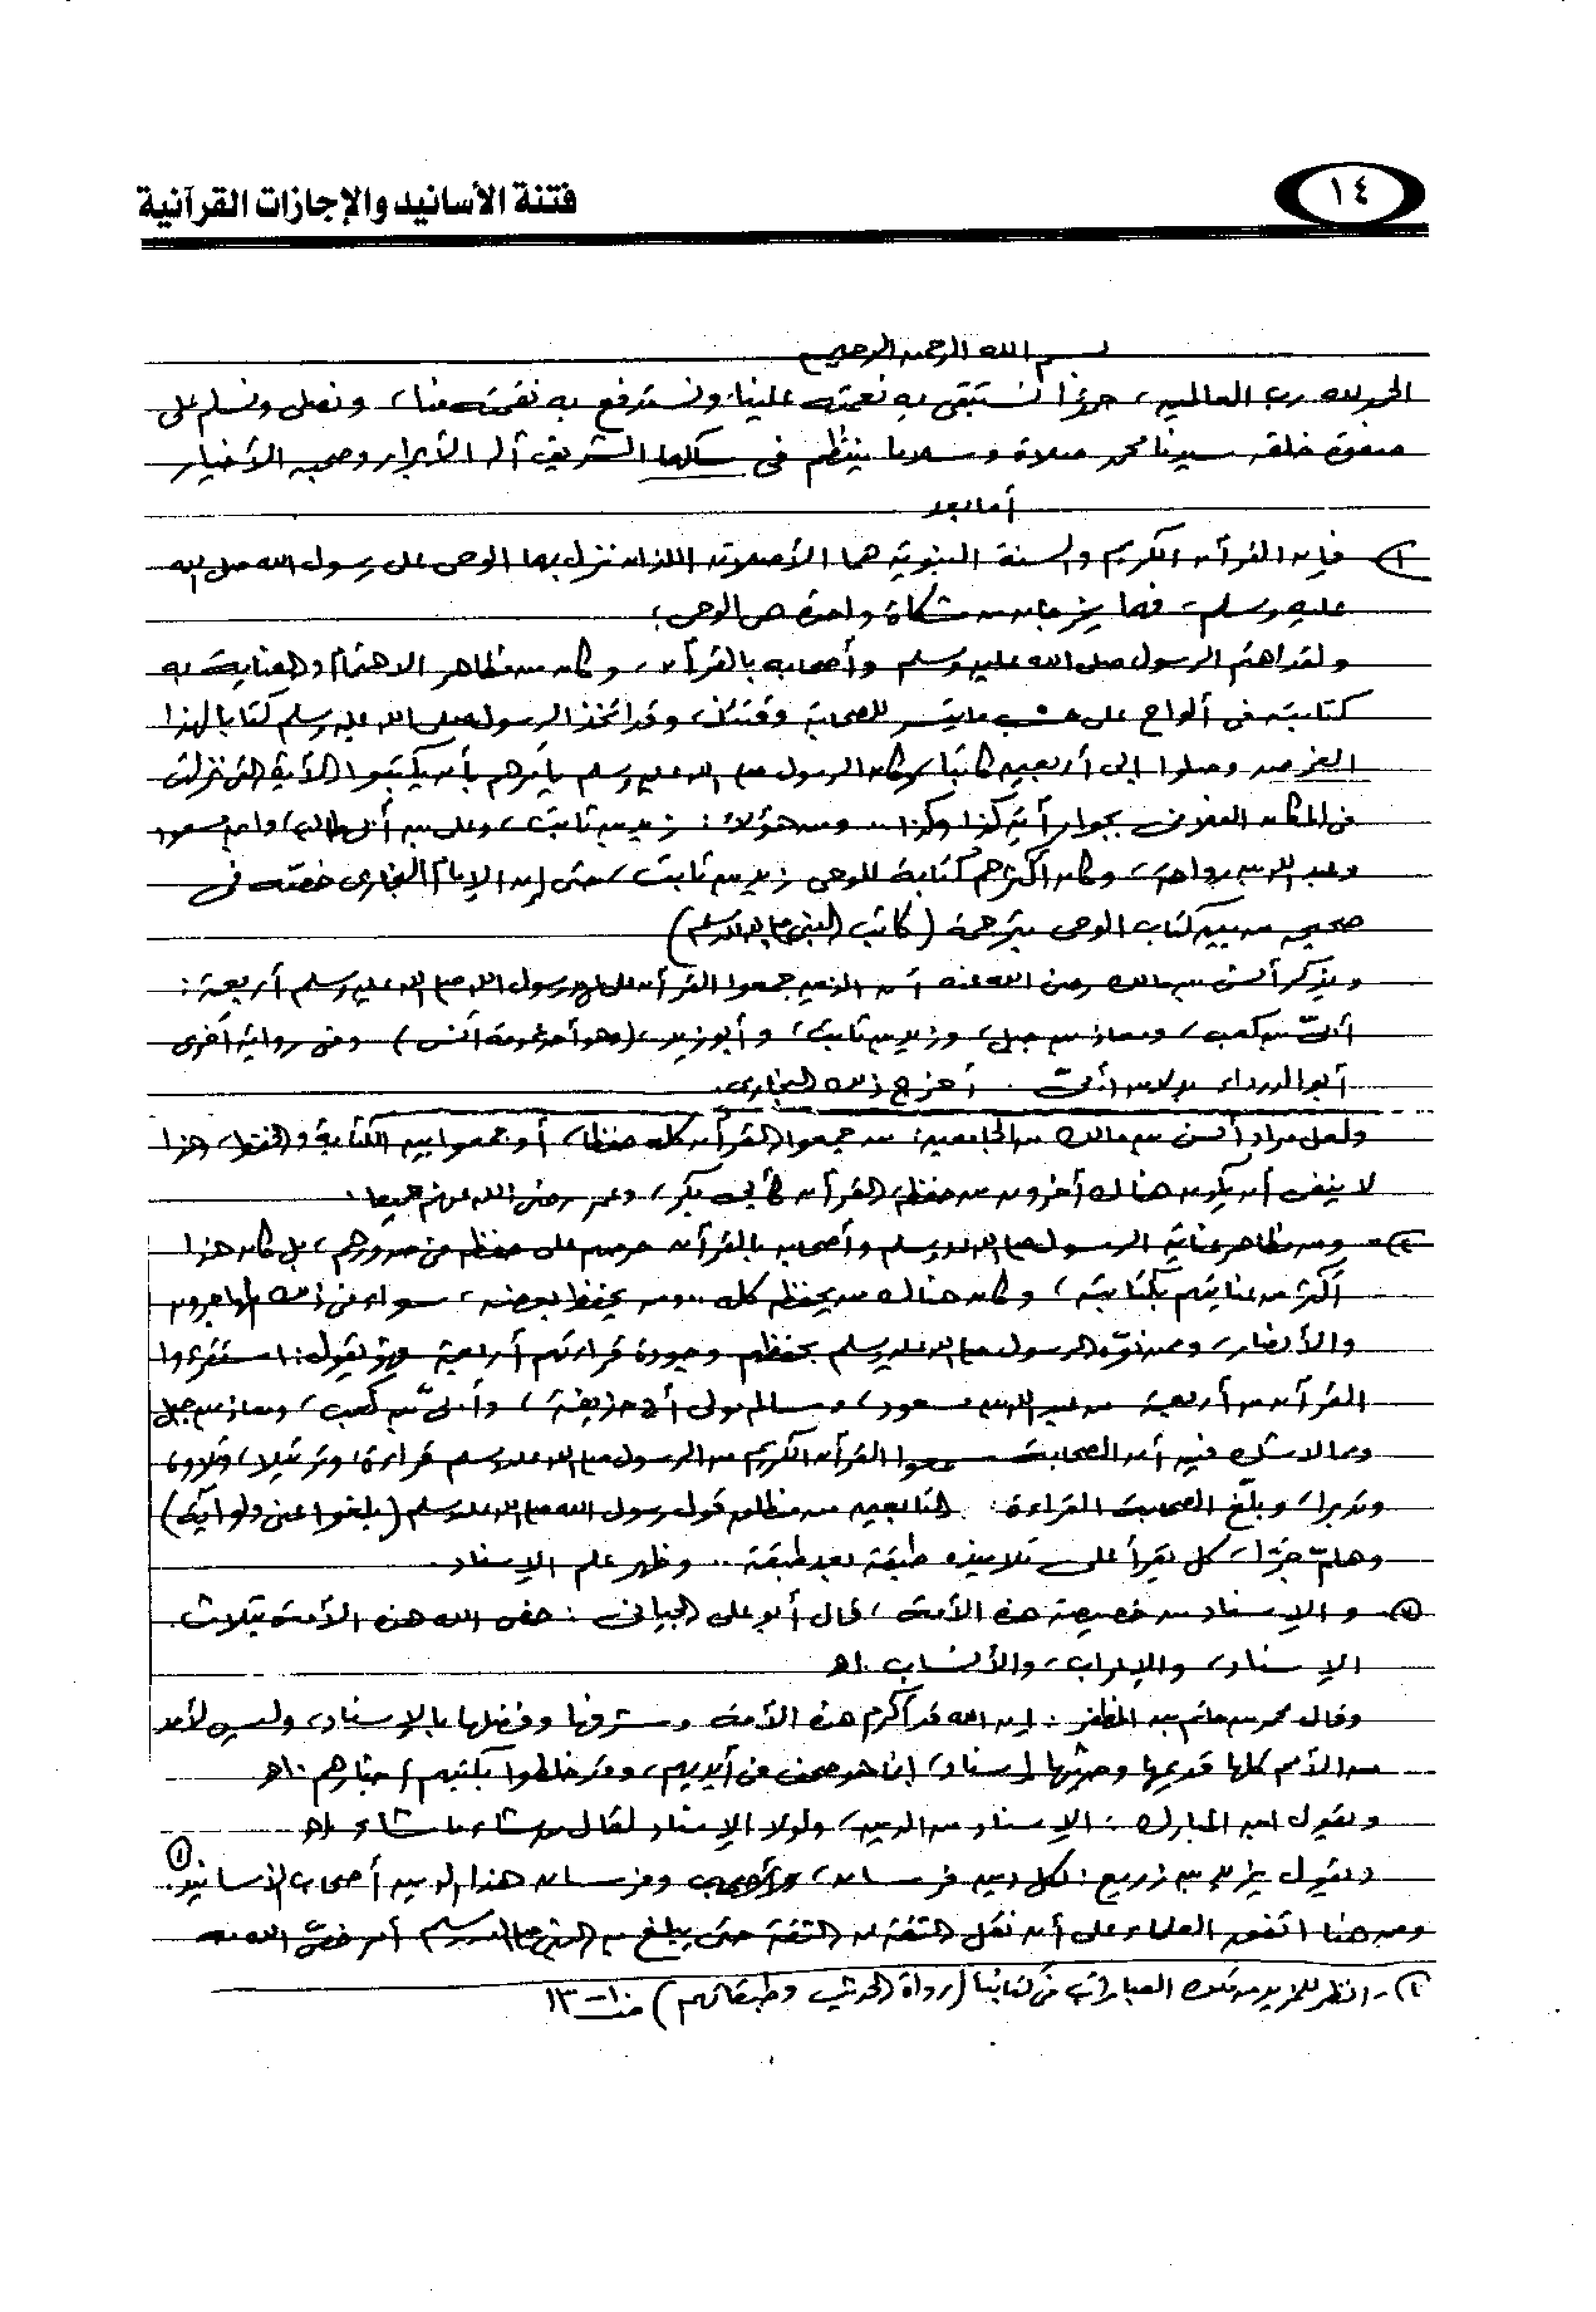 ١٤
فتنة الأسانيد والإجازات القرآنية
بسم الله الرحمن الرحيم
الحمد لله رب العالمين، حمدًا نستبقى به نعمته علينا، ونستدفع به نقمته منا، ونصلى ونسلم على
صفوة خلقه سيدنا محمد صلاة وسلاما ينتظم فى سلكها الشريف آله الأبرار وصحبه الأخيار
أما بعد
١) فإن القرآن الكريم والسنة النبوية هما الأصلان اللذان نزل بهما الوحى على رسول الله صلى الله
عليه وسلم، فهما يخرجان من مشكاة واحدة هى الوحى؛
ولقد اهتم الرسول صلى الله عليه وسلم وأصحابه بالقرآن، وكان من مظاهر الاهتمام والعناية به
كتابته فى ألواح على حسب ما تيسر للصحابة وقتئذ، وقد اتخذ الرسول صلى الله عليه وسلم كتابا لهذا
الغرض وصلوا إلى أربعين كاتبا، وكان الرسول صلى الله عليه وسلم يأمرهم بأن يكتبوا الآية التى نزلت
فى المكان الفلانى بجوار آية كذا وكذا.. ومن هؤلاء: زيد بن ثابت، وعلى بن أبى طالب، وابن مسعود
وعبد الله بن رواحة، وكان أكثرهم كتابة للوحى زيد بن ثابت، حتى إن الإمام البخارى خصّه فى
صحيحه من بين كتاب الوحى بترجمة (كاتب النبى صلى الله عليه وسلم)
ويذكر أنس بن مالك رضى الله عنه أن الذين جمعوا القرآن على عهد رسول الله صلى الله عليه وسلم أربعة:
أبىّ بن كعب، ومعاذ بن جبل، وزيد بن ثابت، وأبو زيد، (وهو أحد عمومة أنس) وفى رواية أخرى
أبو الدرداء بدلا من أبىّ. أخرج ذلك البخارى.
ولعل مراد أنس بن مالك من الجامعين: من جمعوا القرآن كله حفظا، أو جمعوا بين الكتابة والحفظ، وهذا
لا ينفى أن يكون هناك آخرون من حفظة القرآن كأبى بكر، وعمر رضى الله عنهم جميعا.
٢) ومن مظاهر عناية الرسول صلى الله عليه وسلم وأصحابه بالقرآن حرصهم على حفظه فى صدورهم، بل كان هذا
أكثر من عنايتهم بكتابته، وكان هناك من يحفظه كله.. ومن يحفظ بعضه، سواء فى ذلك المهاجرون
والأنصار، وممن نوّه الرسول صلى الله عليه وسلم بحفظهم وجودة قراءتهم أربعة فهو يقول: استقرءوا
القرآن من أربعة من عبد الله بن مسعود، وسالم مولى أبى حذيفة، وأبىّ بن كعب، ومعاذ بن جبل
ومما لا شك فيه أن الصحابة سمعوا القرآن الكريم من الرسول صلى الله عليه وسلم قراءة، وترتيلا، وتلاوة
وتدبرا، وبلّغ الصحابة القراءة: التابعين من منطلق قول رسول الله صلى الله عليه وسلم (بلغوا عنى ولو آية)
وهلمّ جرّا، كل يقرأ على تلاميذه طبقة بعد طبقة.. وظهر علم الإسناد.
٣) والإسناد من خصيصة هذه الأمة، قال أبو على الجيانى: خص الله هذه الأمة بثلاث.
الإسناد، والإعراب، والأنساب. اهـ
وقال محمد بن حاتم بن المظفر: إن الله قد أكرم هذه الأمة وشرفها وفضلها بالإسناد، وليس لأحد
من الأمم كلها قديمها وحديثها إسناد، إنما هو صحف فى أيديهم، وقد خلطوا بكتبهم أخبارهم. اهـ
ويقول ابن المبارك: الإسناد من الدين، ولولا الإسناد لقال من شاء ما شاء. اهـ
ويقول يزيد بن زريع: لكل دين فرسان، وفرسان هذا الدين أصحاب الأسانيد. (١)
ومن هنا اتفق العلماء على أن نقل الثقة عن الثقة حتى يبلغ به النبى صلى الله عليه وسلم أمر خصّ الله به
١) - انظر للمزيد من تلك العبارات فى كتابنا (رواة الحديث وطبقاتهم) من ١٠-١٣